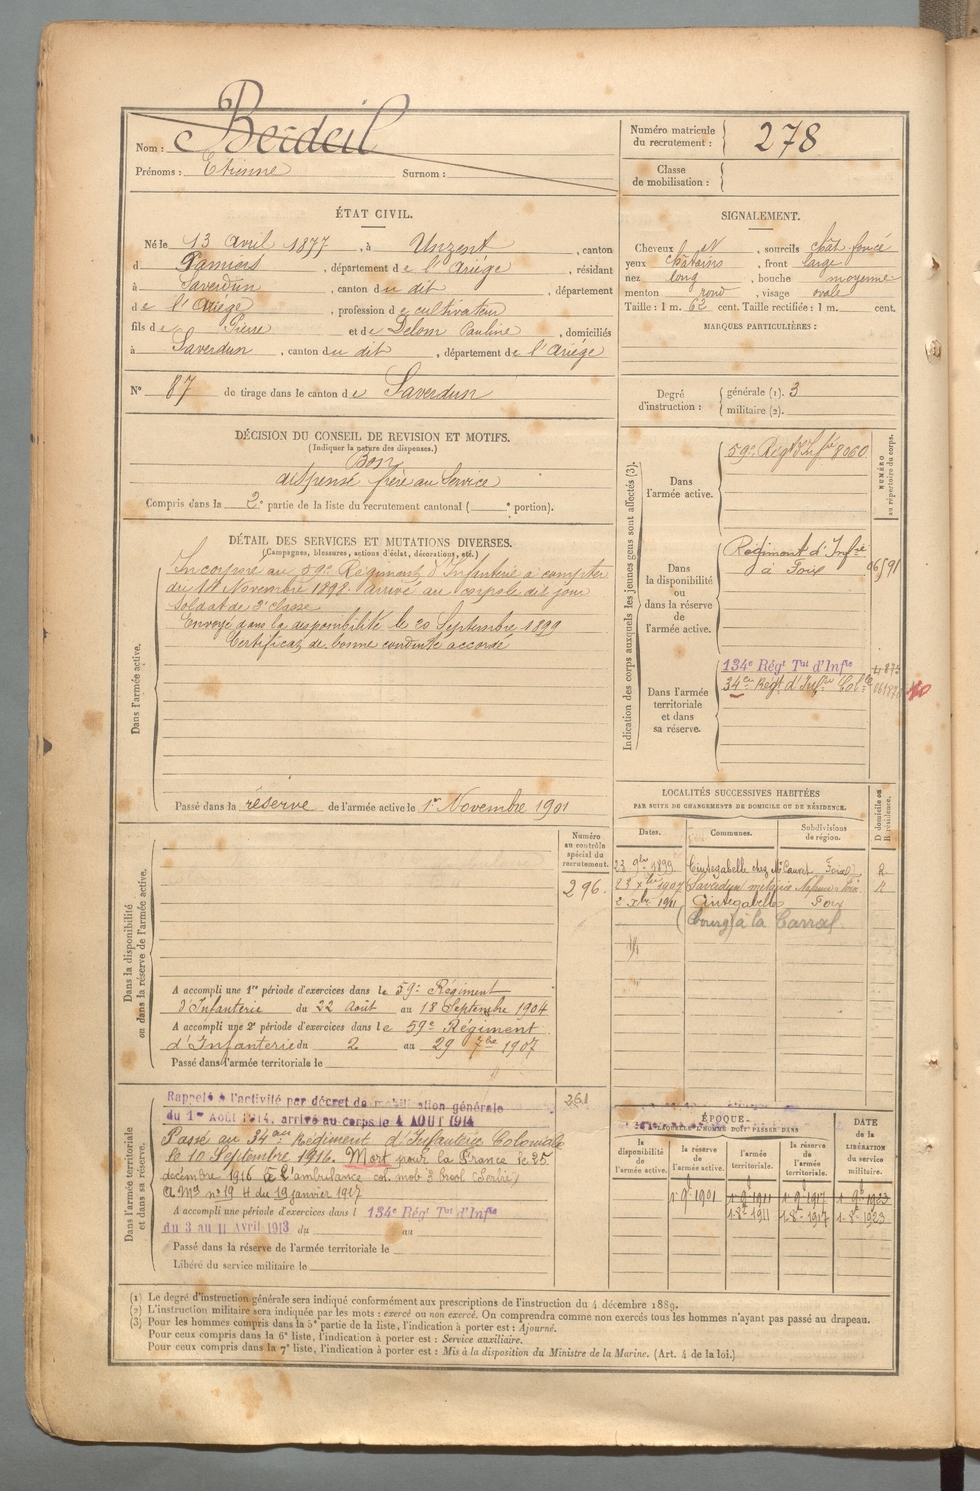 Nom : Berdeil
Prénoms : Etienne Surnom :
Numéro matricule du recrutement : 278
Classe de mobilisation :
ÉTAT CIVIL.
Né le 13 Avril 1877, à Unzent, canton
d Pamiers, département de l'Ariége, résidant
à Saverdun, canton du dit, département
de l'Ariége, profession de cultivateur
fils de Pierre et de Delom Pauline, domiciliés
à Saverdun, canton du dit, département de l'Ariége
N° 87 de tirage dans le canton de Saverdun
SIGNALEMENT.
Cheveux et, sourcils chât. foncé
yeux châtains, front large
nez long, bouche moyenne
menton rond, visage ovale
Taille : 1 m. 62 cent. Taille rectifiée : 1 m. cent.
MARQUES PARTICULIÈRES :
Degré d'instruction : générale (1). 3
militaire (2).
DÉCISION DU CONSEIL DE REVISION ET MOTIFS.
(Indiquer la nature des dispenses.)
Bon
dispensé frère au Service
Compris dans la 2e partie de la liste du recrutement cantonal ( e portion).
DÉTAIL DES SERVICES ET MUTATIONS DIVERSES.
(Campagnes, blessures, actions d'éclat, décorations, etc.)
Dans l'armée active.
Incorporé au 59e Régiment d'Infanterie à compter
du 14 Novembre 1898. Arrivé au corps le dit jour
Soldat de 2e classe
Envoyé dans la disponibilité le 20 Septembre 1899
Certificat de bonne conduite accordé
Passé dans la réserve de l'armée active le 1er Novembre 1901
Indication des corps auxquels les jeunes gens sont affectés (3).
NUMÉRO au répertoire du corps.
Dans l'armée active.
59e Régt d'Infie 8060
Dans la disponibilité ou dans la réserve de l'armée active.
Régiment d'Infie
à Foix
Dans l'armée territoriale et dans sa réserve.
134e Régt Tal d'Infie
34eme Régt d'Infie Colle
LOCALITÉS SUCCESSIVES HABITÉES
PAR SUITE DE CHANGEMENTS DE DOMICILE OU DE RÉSIDENCE.
Dates. Communes. Subdivisions de région. D domicile ou R résidence.
23 9bre 1899 Cintegabelle chez Mr Cauret Foix R
23 Xbre 1907 Saverdun Foix R
2 Xbre 1911 Cintegabelle Foix
(bourg) à la Carral
Dans la disponibilité ou dans la réserve de l'armée active.
Numéro au contrôle spécial du recrutement.
296.
A accompli une 1re période d'exercices dans le 59e Régiment
d'Infanterie du 22 Août au 18 Septembre 1904
A accompli une 2e période d'exercices dans le 59e Régiment
d'Infanterie du 2 au 29 7bre 1907
Passé dans l'armée territoriale le
Dans l'armée territoriale et dans sa réserve.
361
Rappelé à l'activité par décret de mobilisation générale
du 1er Août 1914, arrivé au corps le 4 AOUT 1914
Passé au 34eme Régiment d'Infanterie Coloniale
le 10 Septembre 1916. Mort pour la France le 25
décembre 1916 à l'ambulance col. mob. 3 (Serbie)
A Mel n° 19 4 du 19 janvier 1917
A accompli une période d'exercices dans l 134e Régt Tal d'Infie
du 3 au 11 Avril 1913 du au
Passé dans la réserve de l'armée territoriale le
Libéré du service militaire le
ÉPOQUE
À LAQUELLE L'HOMME DOIT PASSER DANS
la disponibilité de l'armée active. la réserve de l'armée active. l'armée territoriale. la réserve de l'armée territoriale.
DATE de la LIBÉRATION du service militaire.
1-9bre 1901 1-9bre 1911 1-9bre 1917 1-9bre 1923
1-8bre 1911 1-8bre 1917 1-8bre 1923
(1) Le degré d'instruction générale sera indiqué conformément aux prescriptions de l'instruction du 4 décembre 1889.
(2) L'instruction militaire sera indiquée par les mots : exercé ou non exercé. On comprendra comme non exercés tous les hommes n'ayant pas passé au drapeau.
(3) Pour les hommes compris dans la 5e partie de la liste, l'indication à porter est : Ajourné.
Pour ceux compris dans la 6e liste, l'indication à porter est : Service auxiliaire.
Pour ceux compris dans la 7e liste, l'indication à porter est : Mis à la disposition du Ministre de la Marine. (Art. 4 de la loi.)